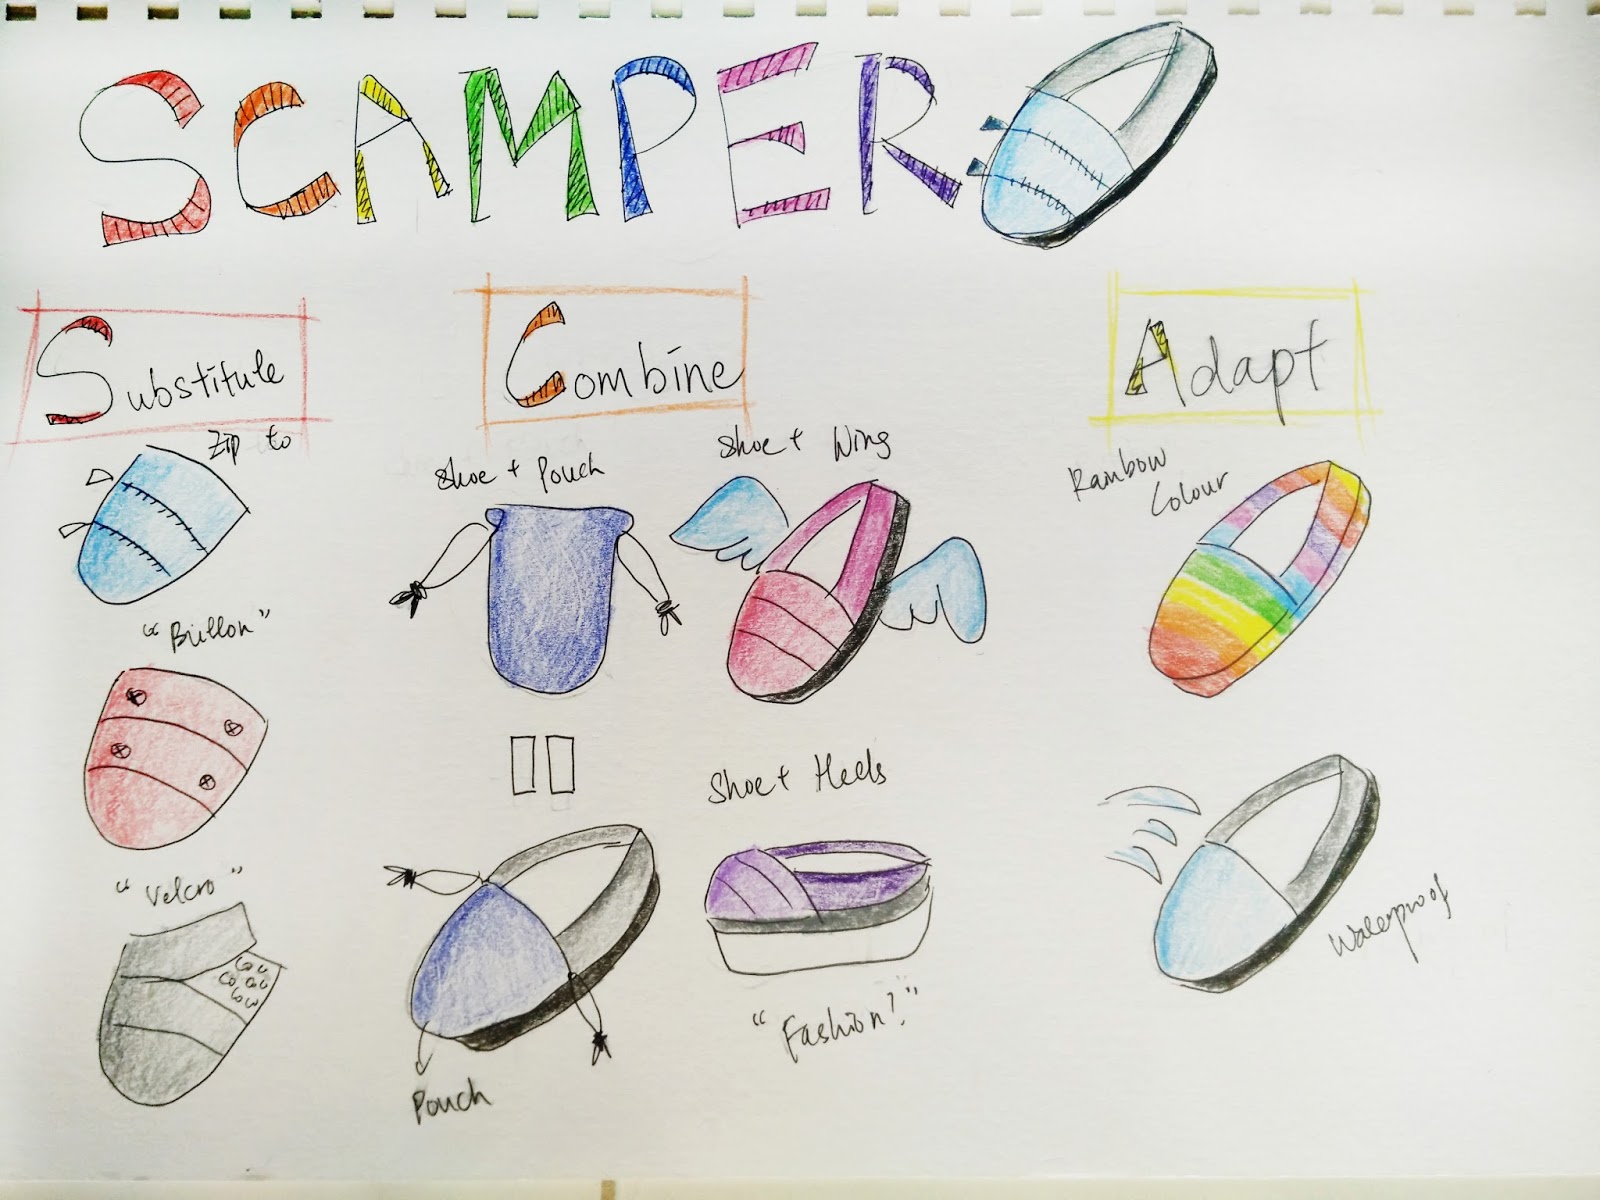 SCAMPER
Substitute
Combine
Adapt
Zip to
Shoe + Pouch
Shoe + Wing
Rainbow
Colour
"Button"
Shoe + Heels
"Velcro"
Waterproof
"Fashion?"
Pouch